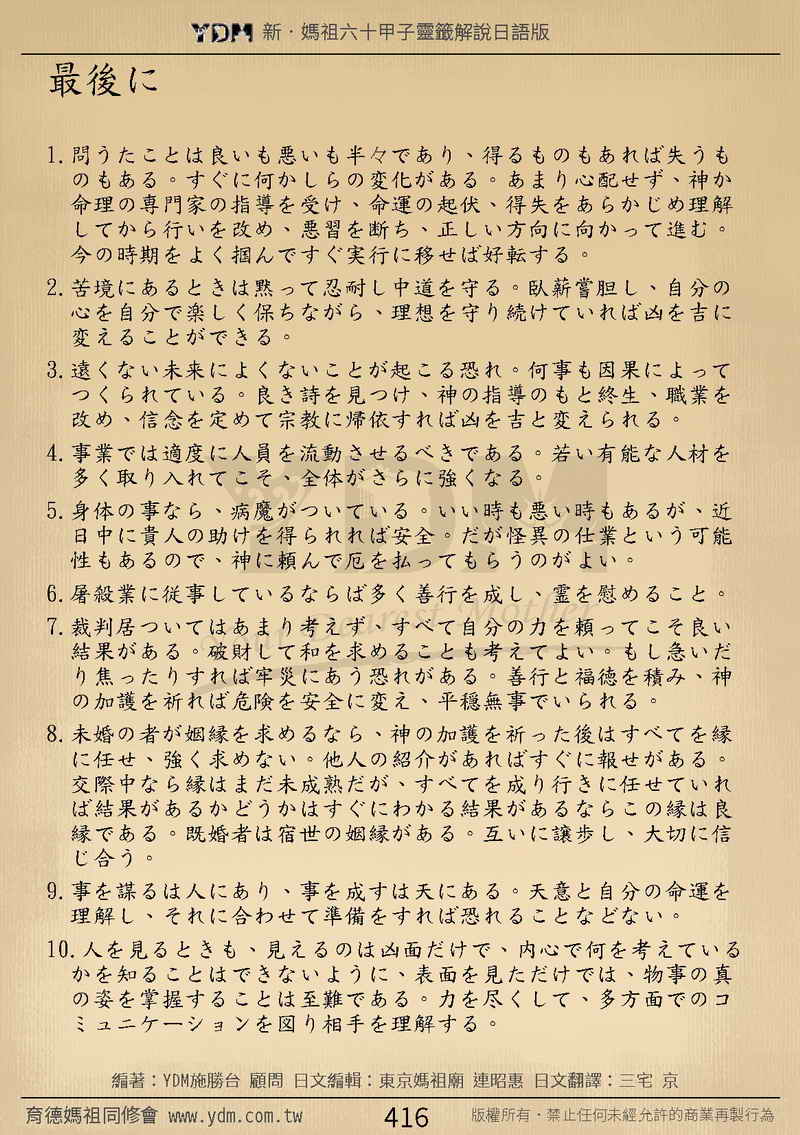 YDM 新・媽祖六十甲子靈籤解說日語版
最後に
1. 問うたことは良いも悪いも半々であり、得るものもあれば失うも
のもある。すぐに何かしらの変化がある。あまり心配せず、神か
命理の専門家の指導を受け、命運の起伏、得失をあらかじめ理解
してから行いを改め、悪習を断ち、正しい方向に向かって進む。
今の時期をよく掴んですぐ実行に移せば好転する。
2. 苦境にあるときは黙って忍耐し中道を守る。臥薪嘗胆し、自分の
心を自分で楽しく保ちながら、理想を守り続けていれば凶を吉に
変えることができる。
3. 遠くない未来によくないことが起こる恐れ。何事も因果によって
つくられている。良き詩を見つけ、神の指導のもと終生、職業を
改め、信念を定めて宗教に帰依すれば凶を吉と変えられる。
4. 事業では適度に人員を流動させるべきである。若い有能な人材を
多く取り入れてこそ、全体がさらに強くなる。
5. 身体の事なら、病魔がついている。いい時も悪い時もあるが、近
日中に貴人の助けを得られれば安全。だが怪異の仕業という可能
性もあるので、神に頼んで厄を払ってもらうのがよい。
6. 屠殺業に従事しているならば多く善行を成し、霊を慰めること。
7. 裁判居ついてはあまり考えず、すべて自分の力を頼ってこそ良い
結果がある。破財して和を求めることも考えてよい。もし急いだ
り焦ったりすれば牢災にあう恐れがある。善行と福徳を積み、神
の加護を祈れば危険を安全に変え、平穏無事でいられる。
8. 未婚の者が姻縁を求めるなら、神の加護を祈った後はすべてを縁
に任せ、強く求めない。他人の紹介があればすぐに報せがある。
交際中なら縁はまだ未成熟だが、すべてを成り行きに任せていれ
ば結果があるかどうかはすぐにわかる結果があるならこの縁は良
縁である。既婚者は宿世の姻縁がある。互いに譲歩し、大切に信
じ合う。
9. 事を謀るは人にあり、事を成すは天にある。天意と自分の命運を
理解し、それに合わせて準備をすれば恐れることなどない。
10. 人を見るときも、見えるのは凶面だけで、内心で何を考えている
かを知ることはできないように、表面を見ただけでは、物事の真
の姿を掌握することは至難である。力を尽くして、多方面でのコ
ミュニケーションを図り相手を理解する。
編著：YDM施勝台 顧問 日文編輯：東京媽祖廟 連昭惠 日文翻譯：三宅 京
育德媽祖同修會 www.ydm.com.tw 416 版權所有・禁止任何未經允許的商業再製行為